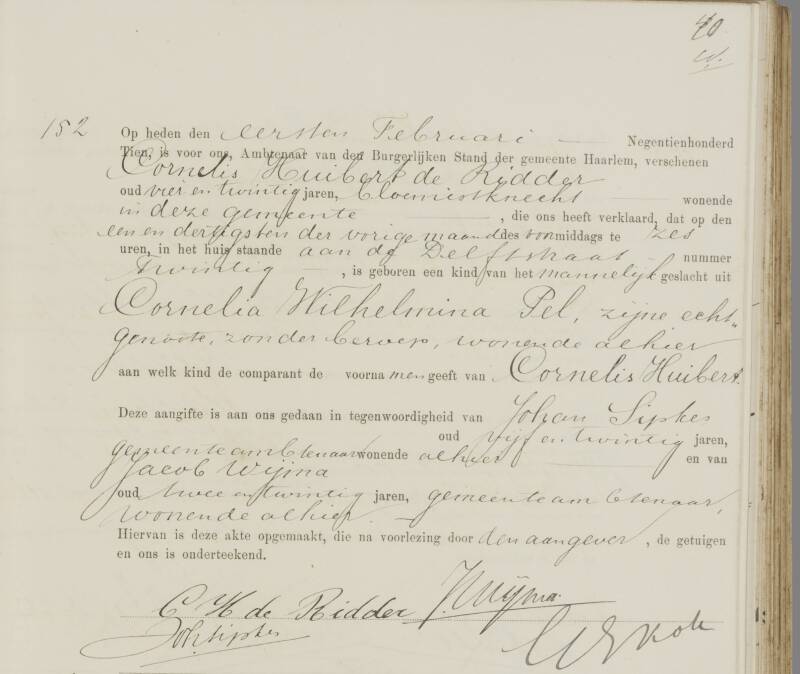 40
152
Op heden den eersten Februari Negentienhonderd
Tien, is voor ons, Ambtenaar van den Burgerlijken Stand der gemeente Haarlem, verschenen
Cornelis Huibert de Ridder
oud vier en twintig jaren, bloemistknecht wonende
in deze gemeente, die ons heeft verklaard, dat op den
een en dertigsten der vorige maand des voormiddags te zes
uren, in het huis staande aan de Delftstraat nummer
twintig, is geboren een kind van het mannelijk geslacht uit
Cornelia Wilhelmina Pel, zijne echt„
genoote, zonder beroep, wonende alhier
aan welk kind de comparant de voornamen geeft van Cornelis Huibert.
Deze aangifte is aan ons gedaan in tegenwoordigheid van Johan Sipkes
oud vijf en twintig jaren,
gemeenteambtenaar wonende alhier en van
Jacob Wijma
oud twee en twintig jaren, gemeenteambtenaar,
wonende alhier.
Hiervan is deze akte opgemaakt, die na voorlezing door den aangever, de getuigen
en ons is onderteekend.
C H de Ridder J. Wijma.
Joh. Sipkes